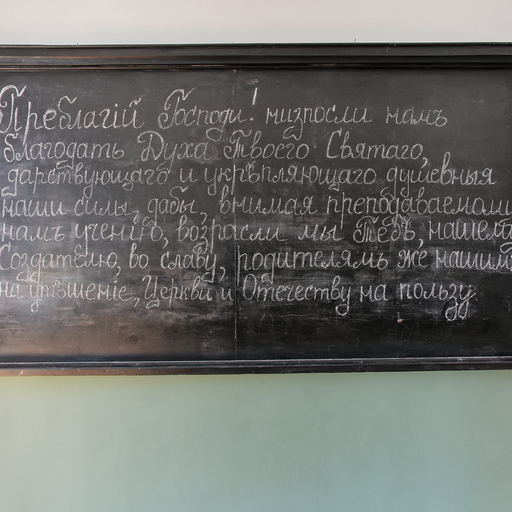 Преблагій Господи! низпосли намъ
благодать Духа Твоего Святаго,
дарствующаго и укрѣпляющаго душевныя
наши силы, дабы, внимая преподаваемому
намъ ученію, возрасли мы Тебѣ, нашему
Создателю, во славу, родителямъ же нашимъ
на утѣшеніе, Церкви и Отечеству на пользу.